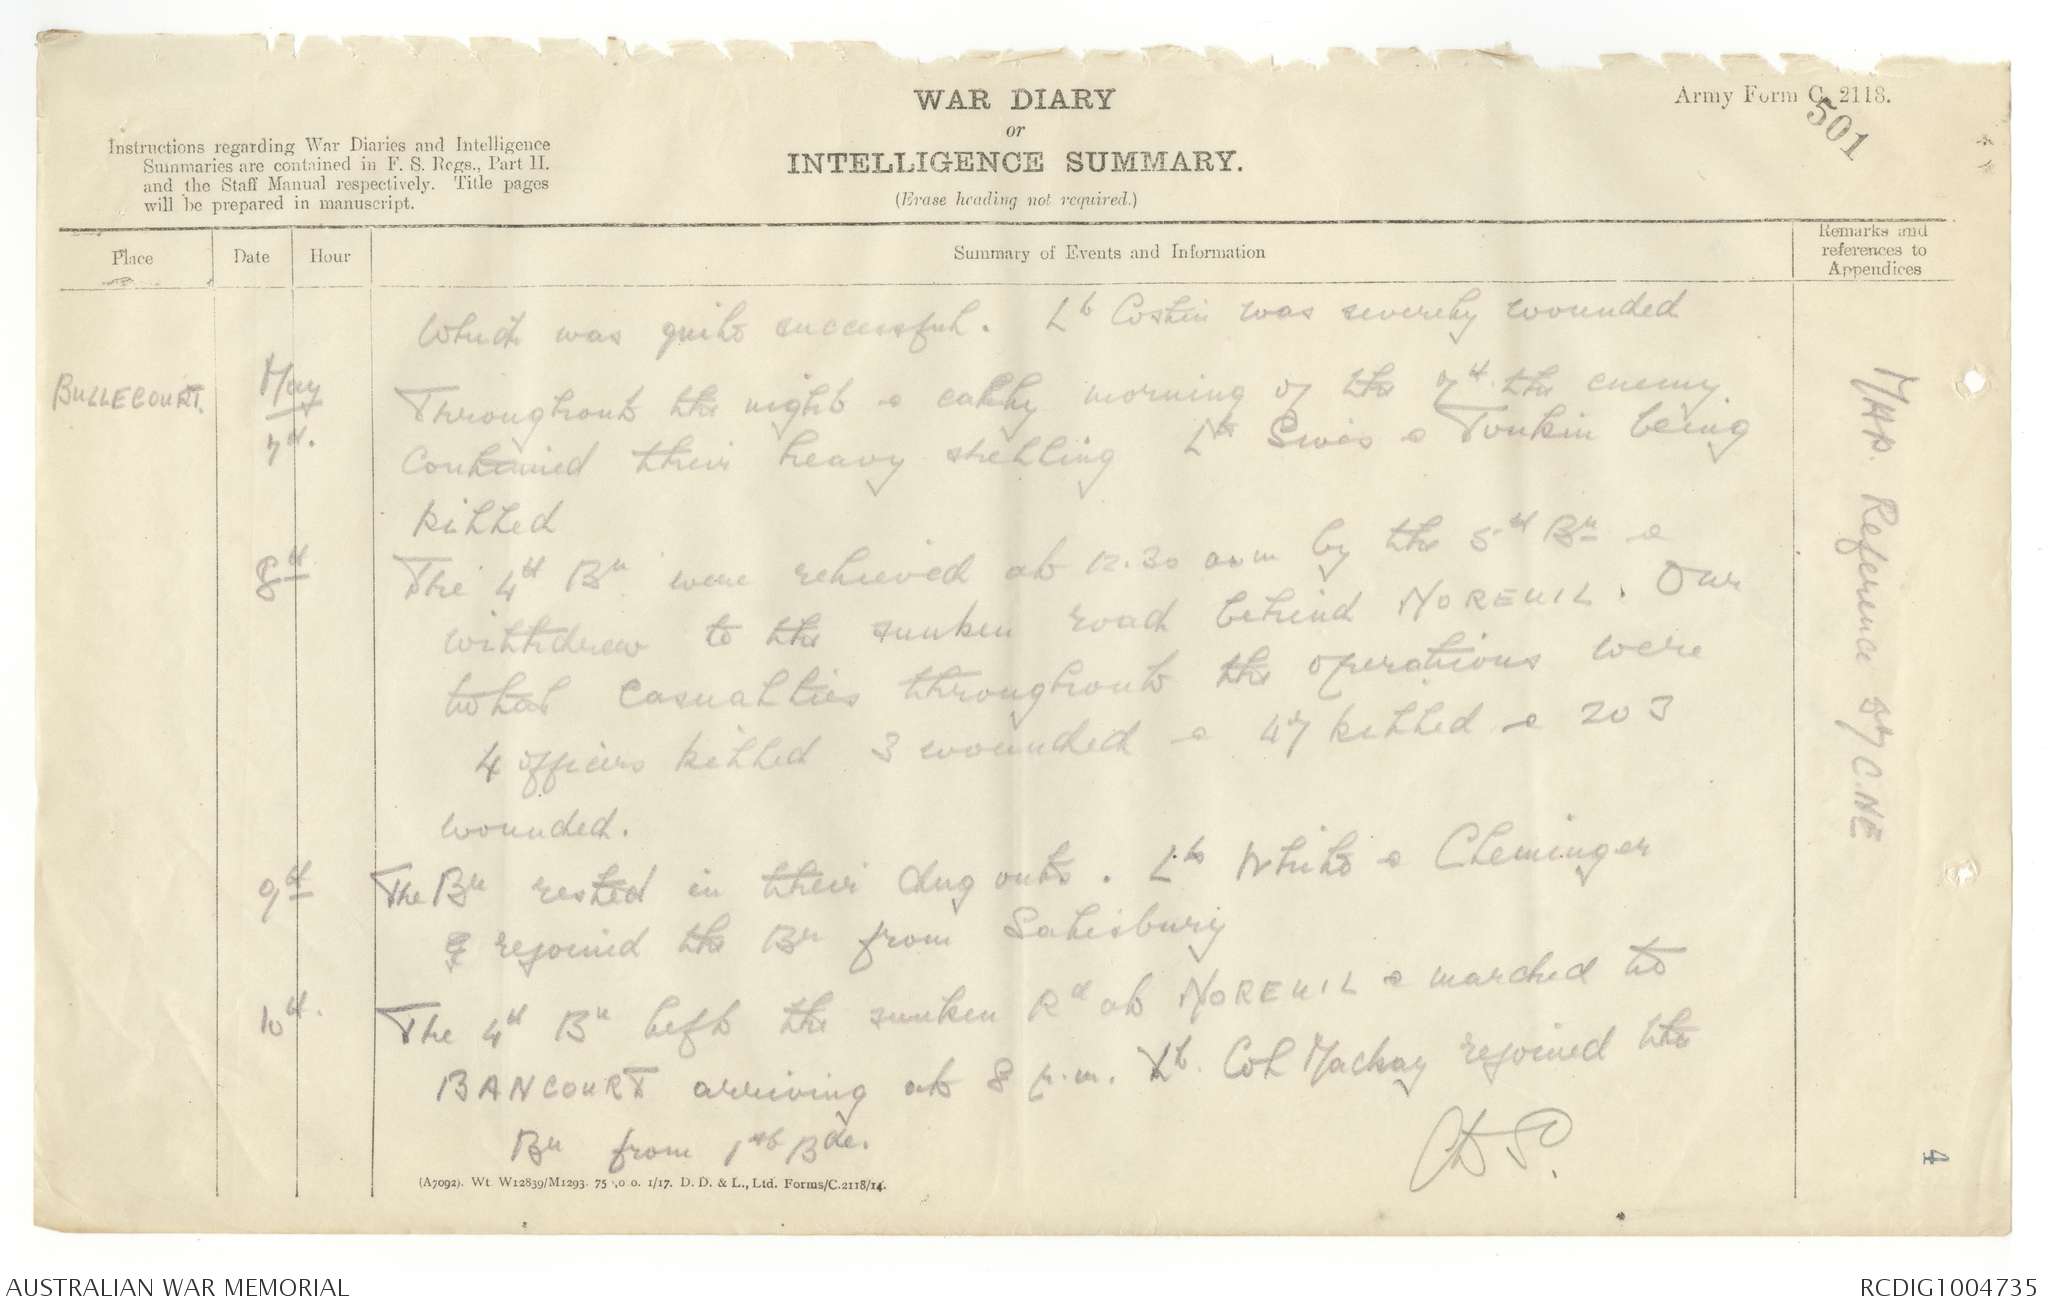 WAR DIARY
or
INTELLIGENCE SUMMARY.
(Erase heading not required.)
Army Form C. 2118.
501
Instructions regarding War Diaries and Intelligence
Summaries are contained in F. S. Regs., Part II.
and the Staff Manual respectively. Title pages
will be prepared in manuscript.
Place
Date
Hour
Summary of Events and Information
Remarks and
references to
Appendices
which was quite successful. Lt Costin was severely wounded
BULLECOURT. May
7th. Throughout the night & early morning of the 7th the enemy
continued their heavy shelling Lts & Tonkin being
killed
8th The 4th Bn were relieved at 12.30 a.m by the 5th Bn &
withdrew to the sunken road behind NOREUIL. Our
total casualties throughout the operations were
4 officers killed 3 wounded & 47 killed & 203
wounded.
9th The Bn rested in their dug outs. Lts White & Cleminger
rejoined the Bn from Salisbury
10th. The 4th Bn left the sunken Rd at NOREUIL & marched to
BANCOURT arriving at 8 p.m. Lt. Col Mackay rejoined the
Bn from 1st Bde.
MAP. Reference 57C.NE
4
(A7092). Wt. W12839/M1293. 75 ,0 0. 1/17. D. D. & L., Ltd. Forms/C.2118/14.
AUSTRALIAN WAR MEMORIAL
RCDIG1004735